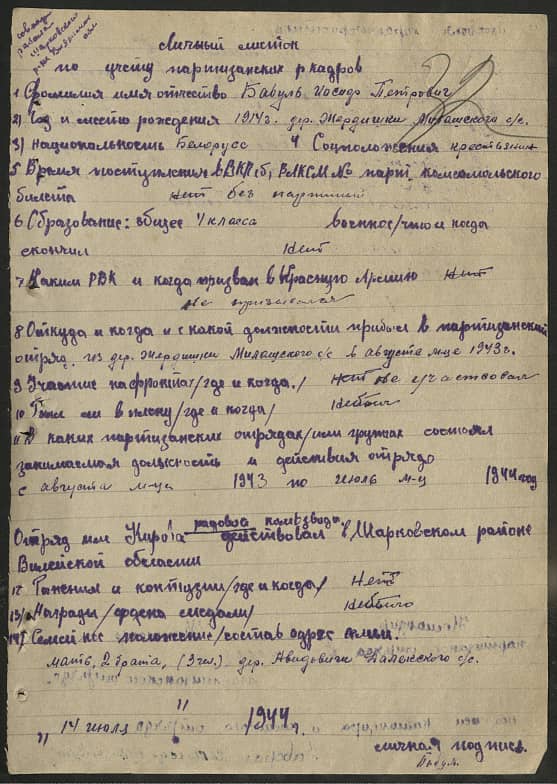 личный листок
по учёту партизанских кадров
1 Фамилия имя отчество Бабуль Иосиф Петрович
2) Год и место рождения 1914г. дер. Жердяшки с/с.
3) национальность Белорусс 4 Соцположения крестьянин
5 Время поступления в ВКП(б), ВЛКСМ № парт. комсомольского
билета нет без партий
6 Образование: общее 4 класса военное/что и когда
скончил нет
7 Каким РВК и когда призван в Красную Армию нет
не призывался
8 Откуда и когда и с какой должности прибыл в партизанский
отряд. из дер. Жердяшки с/с в августа м-це 1943г.
9 Участие на фронтах/где и когда./ нет не участвовал
10 Был ли в плену/где и когда/ не был
11 В каких партизанских отрядах/или группах состоял
занимаемая должность и действия отряда
с августа м-ца 1943 по июль м-ц 1944 год
рядовой
Отряд им Кирова действовал в Шарковском районе
Вилейской области
12 Ранения и контузии/где и когда/ Нет
13) Награды/ордена медали/ не было
14) Семейное положение/состав адрес семьи.
мать, 2 брата, (3 чел.) дер. с/с.
" 14 июля " 1944 г.
личная подпись.